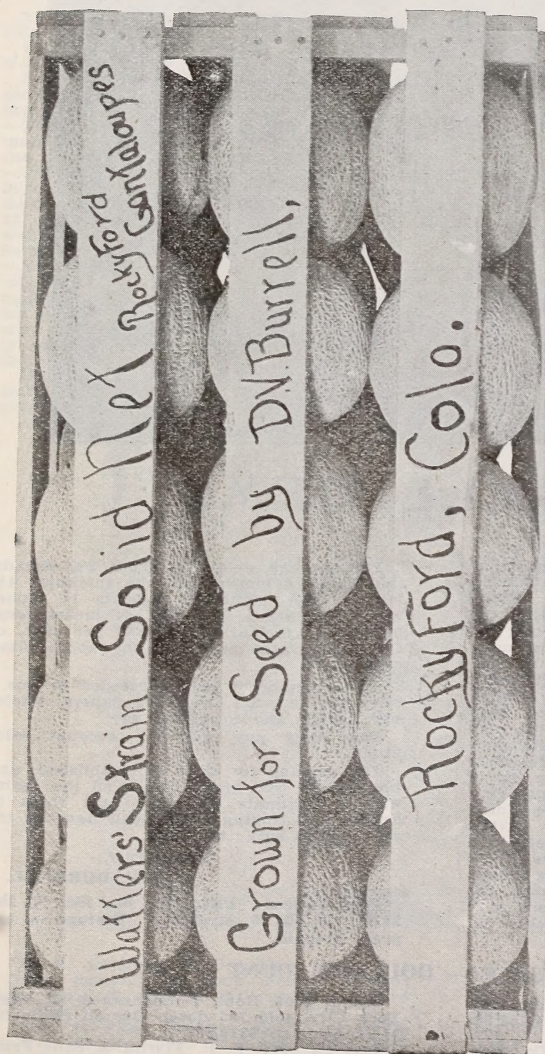 Watters' Strain Solid Net Rocky Ford
Cantaloupes
Grown for Seed by D.V. Burrell,
Rocky Ford, Colo.